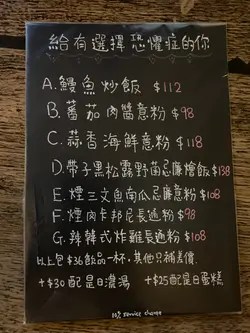 給有選擇恐懼症的你
A.鰻魚炒飯 $112
B.蕃茄肉醬意粉 $98
C.蒜香海鮮意粉 $118
D.帶子黑松露野菌忌廉燴飯 $138
E.煙三文魚南瓜忌廉意粉 $108
F.煙肉卡邦尼長通粉 $98
G.辣韓式炸雞長通粉 $108
以上包$36飲品一杯,其他只補差價.
+$30配是日濃湯 +$25配是日蛋糕
10% service charge